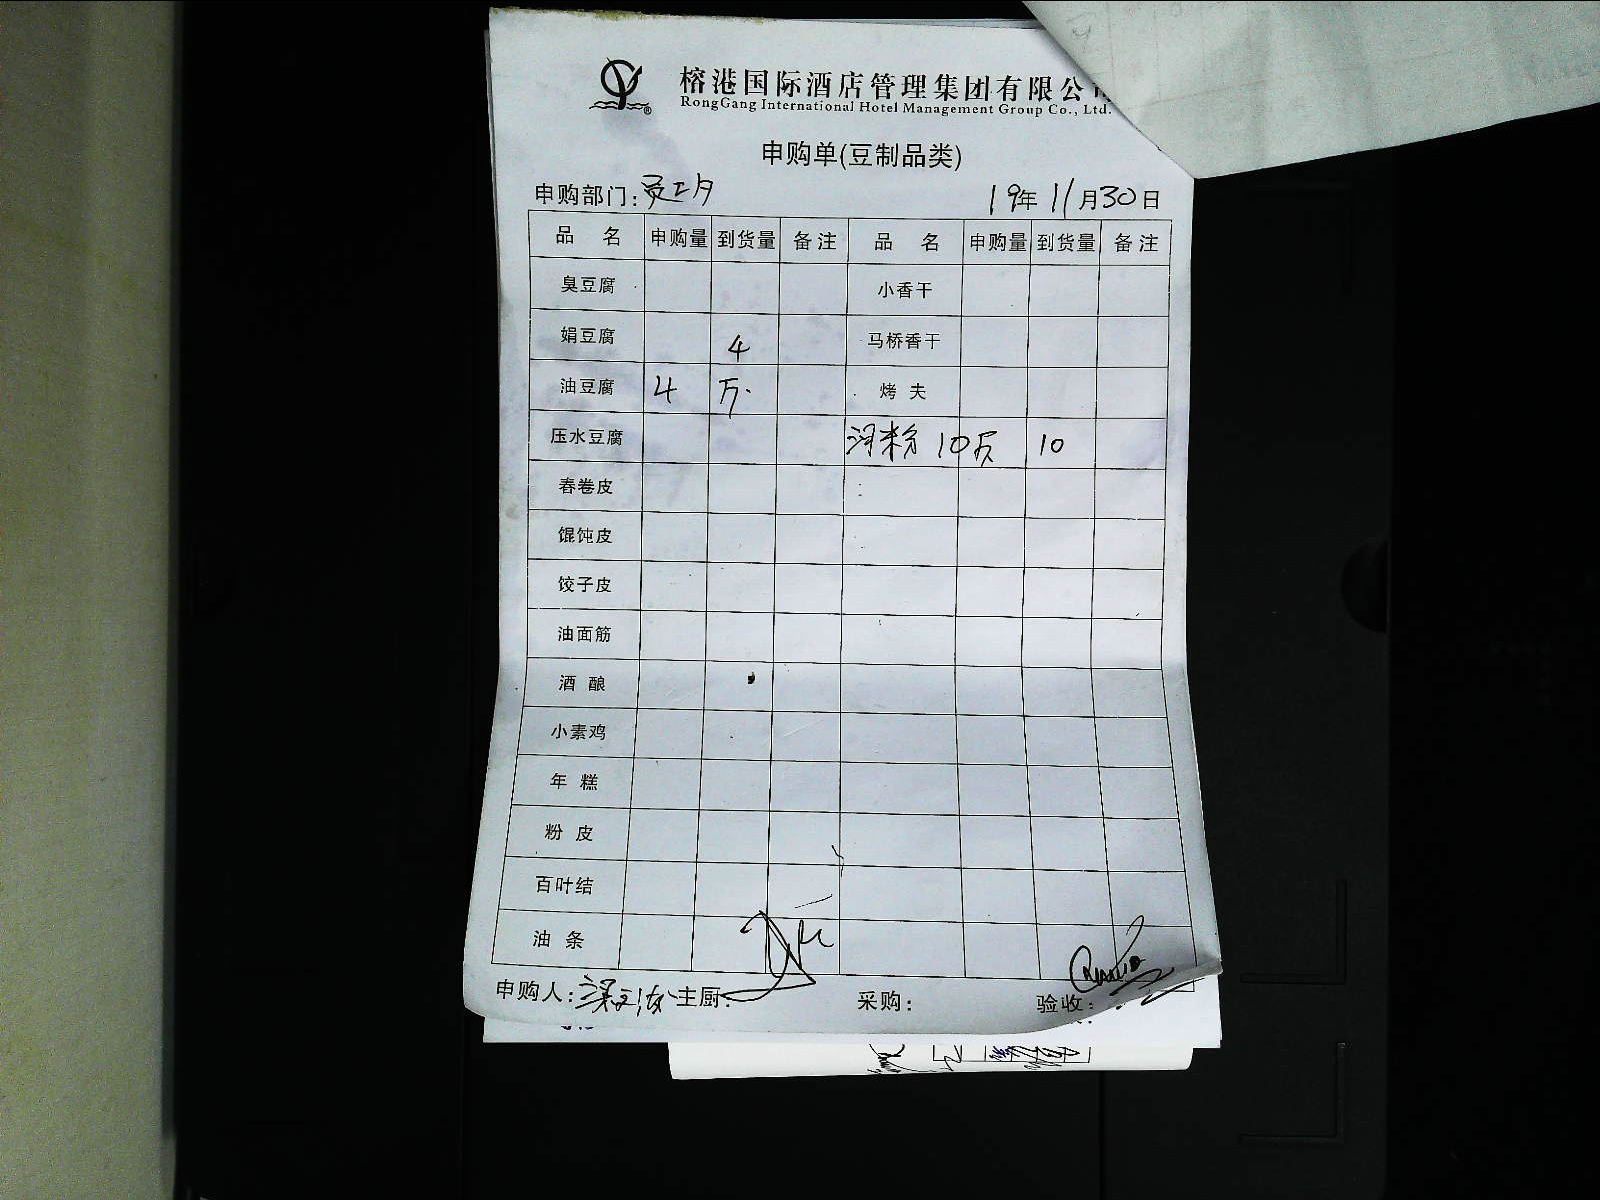 榕港国际酒店管理集团有限公
RongGang International Hotel Management Group Co., Ltd.
申购单(豆制品类)
申购部门: 19年 11月30日
品 名 申购量 到货量 备注 品 名 申购量 到货量 备注
臭豆腐 小香干
娟豆腐 4 马桥香干
油豆腐 4 斤 烤 夫
压水豆腐 河粉 10斤 10
春卷皮
馄饨皮
饺子皮
油面筋
酒 酿
小素鸡
年 糕
粉 皮
百叶结
油 条
申购人: 主厨: 采购: 验收: